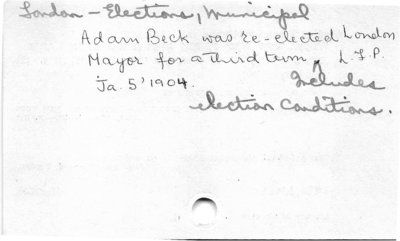 London - Elections, Municipal
Adam Beck was re-elected London
Mayor for a third term, L.F.P.
Ja. 5' 1904. Includes
election conditions.